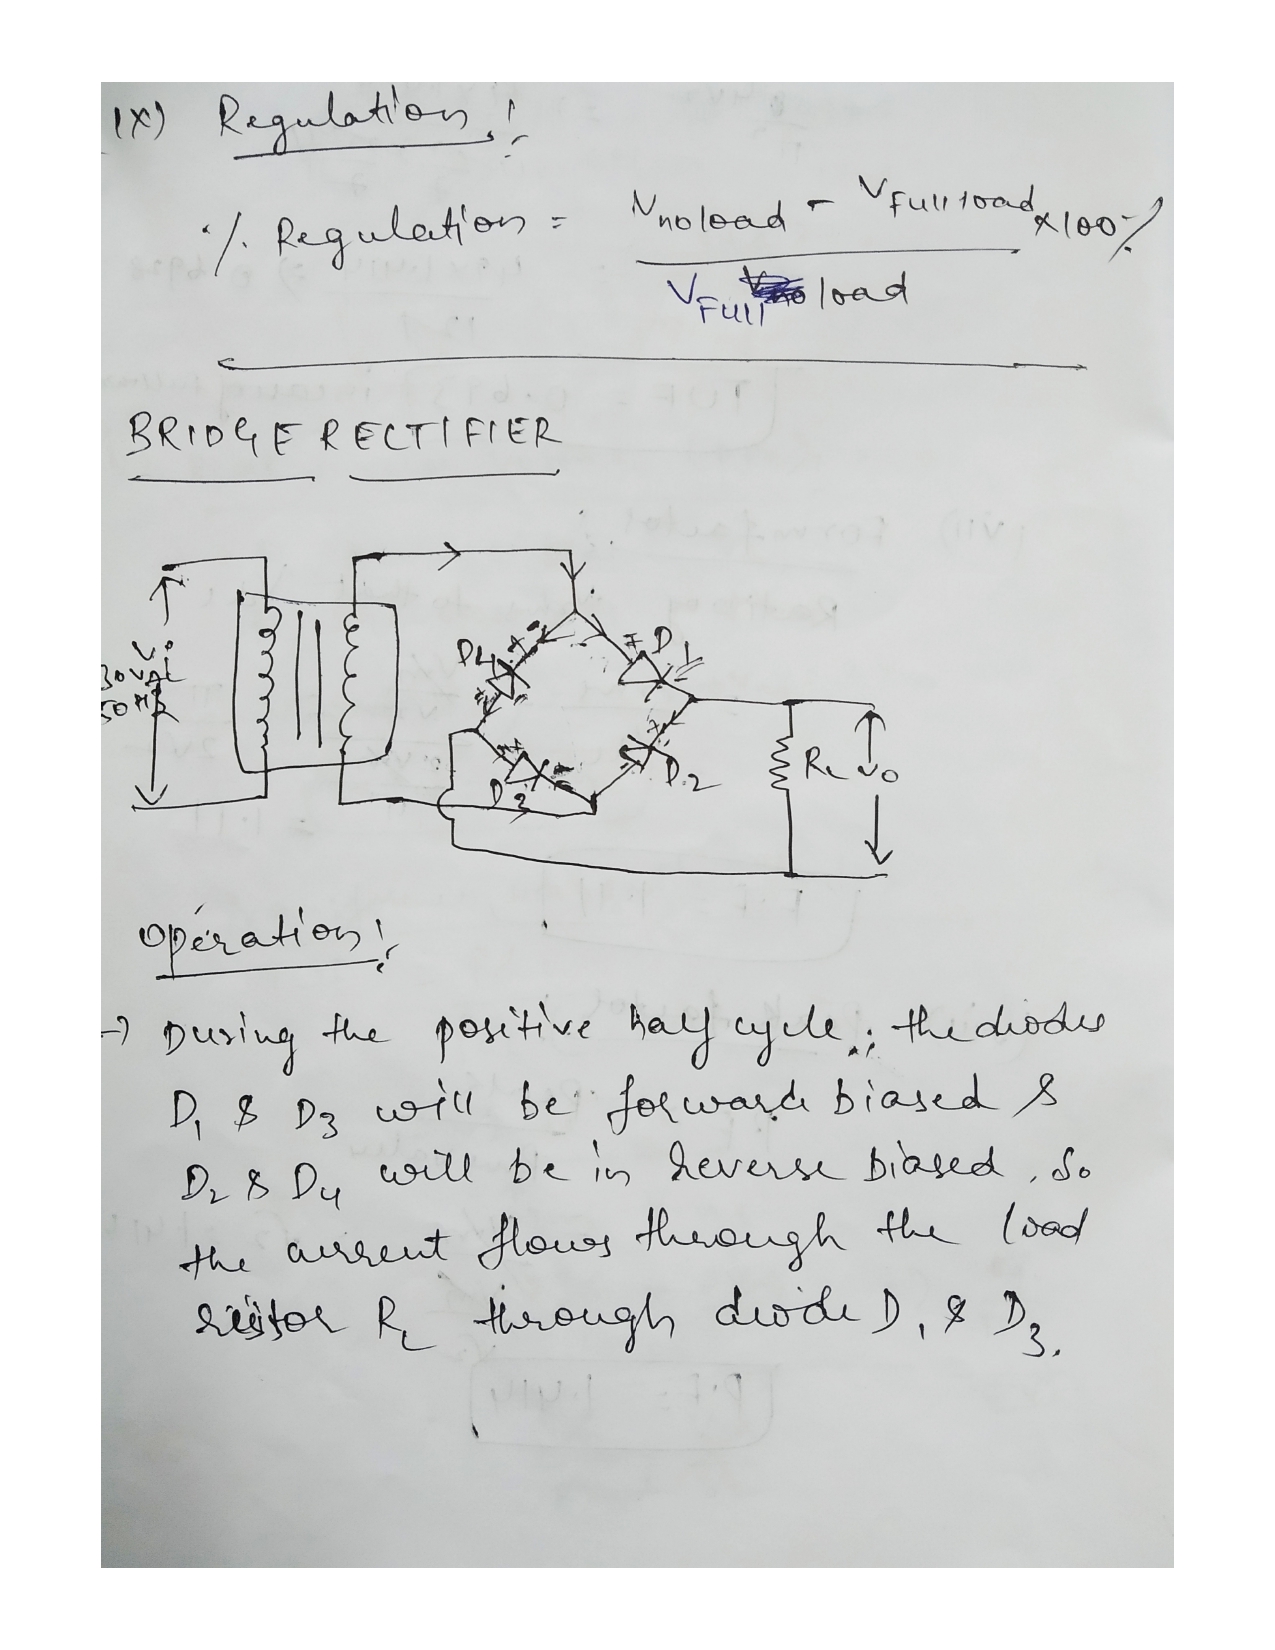 (X) Regulation :
% Regulation = V no load - V Full load x100%
V Full load
BRIDGE RECTIFIER
D4 D1
50 Hz
D3 D2 RL Vo
Operation :
→ During the positive half cycle : the diodes
D1 & D3 will be forward biased &
D2 & D4 will be in reverse biased, so
the current flows through the load
resistor RL through diode D1 & D3.